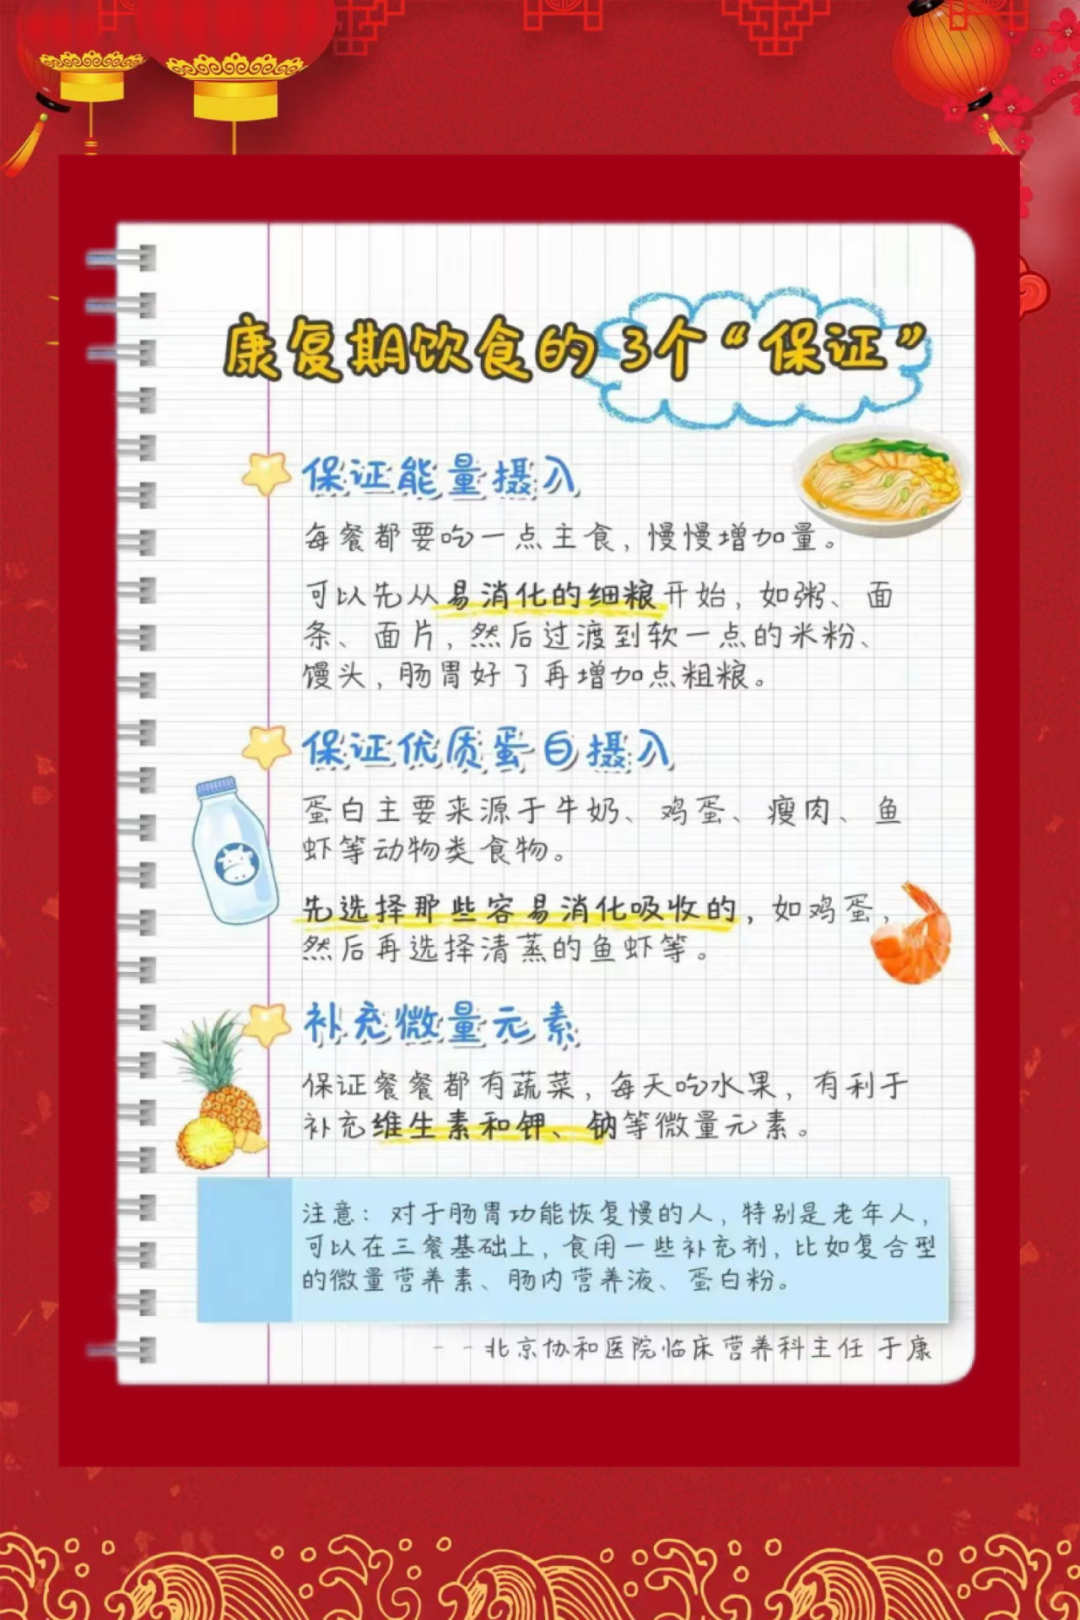 康复期饮食的3个“保证”
保证能量摄入
每餐都要吃一点主食，慢慢增加量。
可以先从易消化的细粮开始，如粥、面
条、面片，然后过渡到软一点的米粉、
馒头，肠胃好了再增加点粗粮。
保证优质蛋白摄入
蛋白主要来源于牛奶、鸡蛋、瘦肉、鱼
虾等动物类食物。
先选择那些容易消化吸收的，如鸡蛋，
然后再选择清蒸的鱼虾等。
补充微量元素
保证餐餐都有蔬菜，每天吃水果，有利于
补充维生素和钾、钠等微量元素。
注意：对于肠胃功能恢复慢的人，特别是老年人，
可以在三餐基础上，食用一些补充剂，比如复合型
的微量营养素、肠内营养液、蛋白粉。
--北京协和医院临床营养科主任 于康